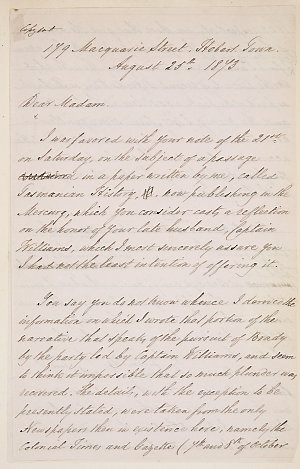 179 Macquarie Street. Hobart Town.
August 25th. 1873.
Dear Madam.
I was favored with your note of the 21st
on Saturday, on the subject of a passage
in a paper written by me, called
Tasmanian History, now publishing in the
Mercury, which you consider casts a reflection
on the honor of your late husband, Captain
Williams, which I most sincerely assure you
I had not the least intention of offering it.
You say you do not know whence I derived the
information on which I wrote that portion of the
narrative that speaks of the pursuit of Brady
by the party led by Captain Williams, and seem
to think it impossible that so much plunder was
recovered. The details, with the exception to be
presently stated, were taken from the only
Newspapers then in existence here, namely the
Colonial Times and Gazette (7th and 8th of October